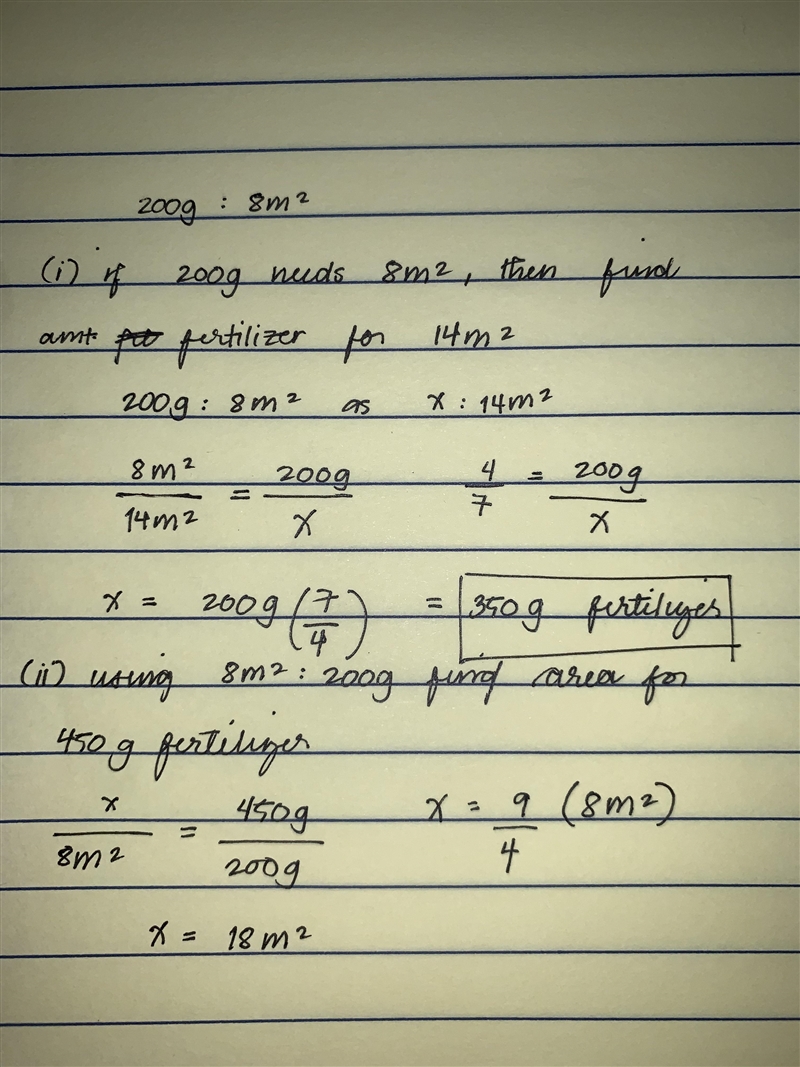 200g : 8m²
(i) if 200g needs 8m², then find
amt fertilizer for 14m²
200g : 8m² as x : 14m²
8m²/14m² = 200g/x    4/7 = 200g/x
x = 200g (7/4) = 350g fertilizer
(ii) using 8m² : 200g find area for
450g fertilizer
x/8m² = 450g/200g    x = 9/4 (8m²)
x = 18m²